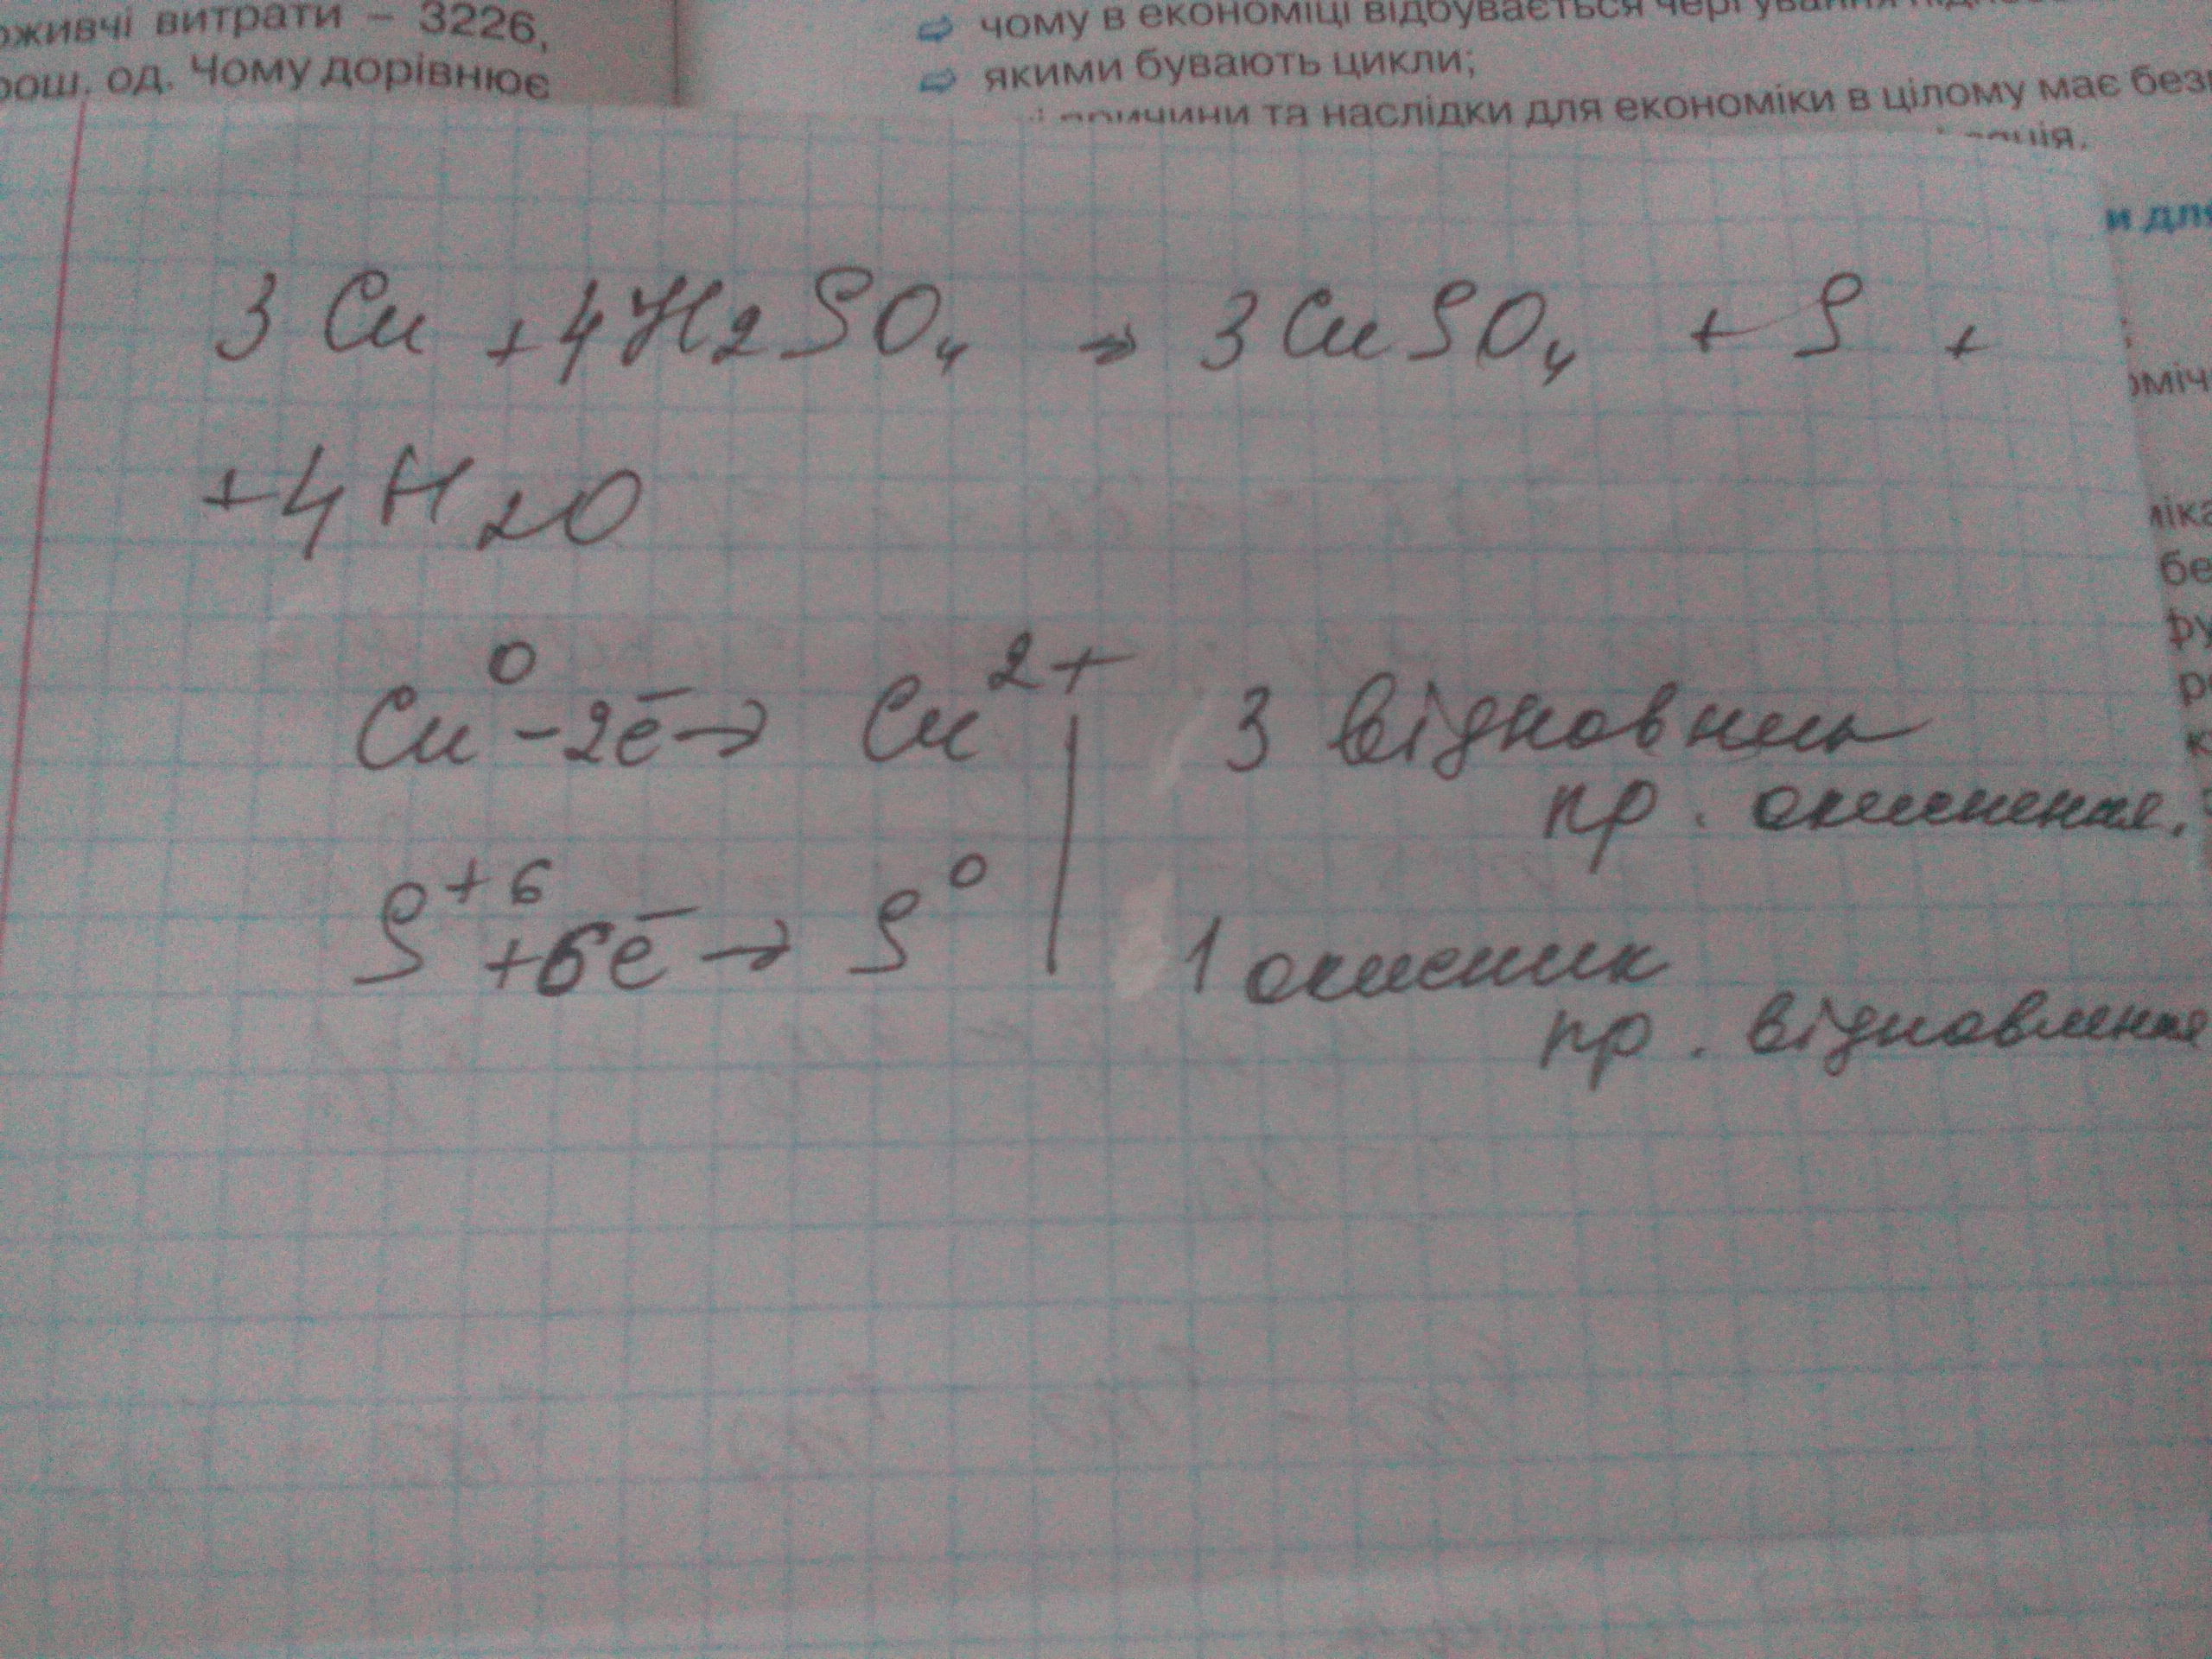 живчі витрати – 3226,
рош. од. Чому дорівнює
⇨ чому в економіці відбувається чергування
⇨ якими бувають цикли;
причини та наслідки для економіки в цілому має
и для
3 Cu + 4 H2SO4 → 3 CuSO4 + S +
+ 4 H2O
Cu⁰ – 2ē → Cu²⁺ | 3 відновник
пр. окиснення.
S⁺⁶ + 6ē → S⁰ | 1 окисник
пр. відновлення